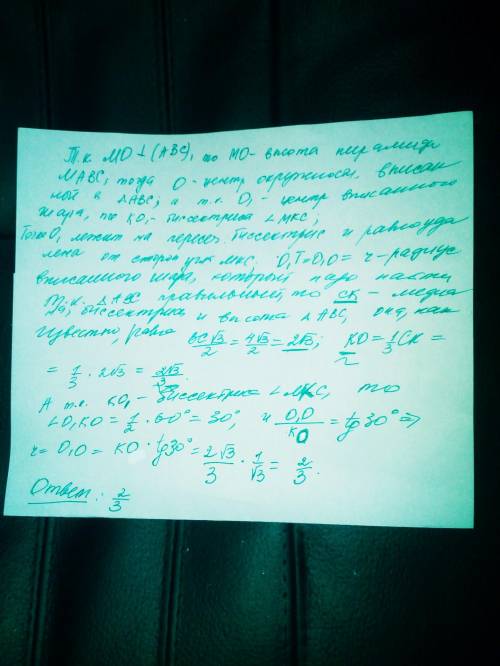 Т.к. MO ⊥ (ABC), то MO - высота пирамиды
MABC, тогда O - центр окружности, вписан
ной в ΔABC; и т.к. O₁ - центр вписанного
шара, то KO₁ - биссектриса ∠MKC;
Точка O₁ лежит на перес. биссектрис и равноуда
лена от сторон угла MKC. O₁T = O₁O = r - радиус
вписанного шара, который надо найти
Т.к. ΔABC правильный, то CK - медиа
на, биссектриса и высота ΔABC, она, как
известно, равна BC√3/2 = 4√3/2 = 2√3; KO = 1/3 CK =
= 1/3 · 2√3 = 2√3/3.
А т.к. KO₁ - биссектриса ∠MKC, то
∠O₁KO = 1/2 · 60° = 30°, и O₁O/KO = tg 30° ⇒
r = O₁O = KO · tg 30° = 2√3/3 · 1/√3 = 2/3.
Ответ: 2/3